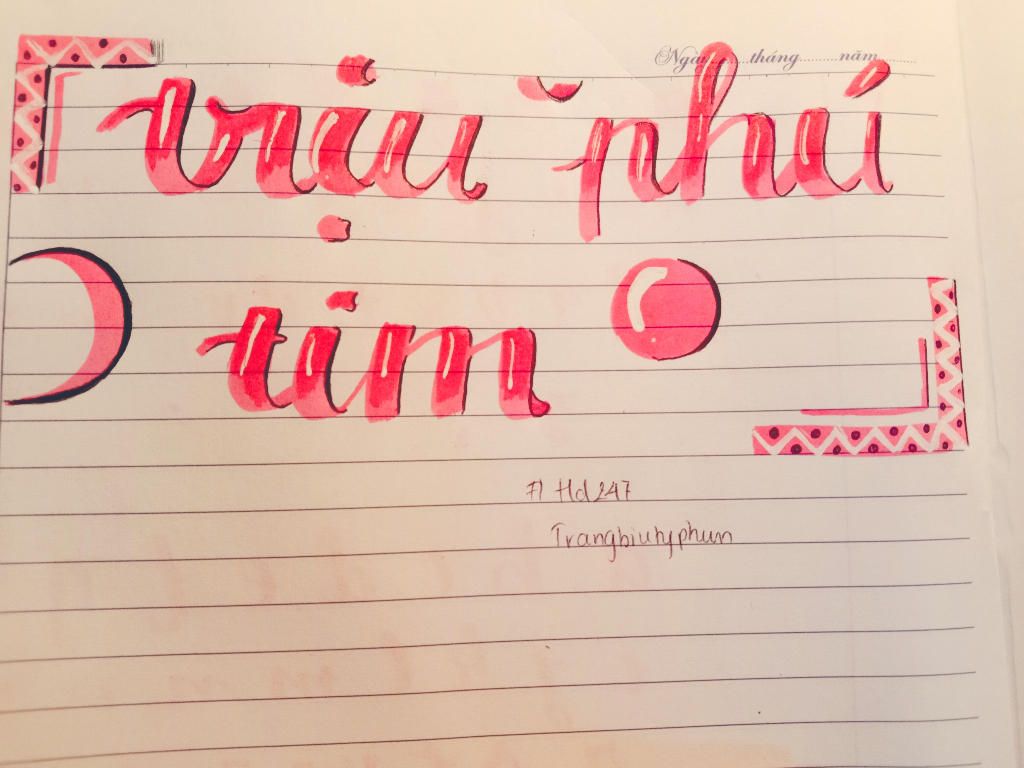 Ngày......tháng.........năm.........
vrịu phú
tim
Hd247
Trangbiutyphun